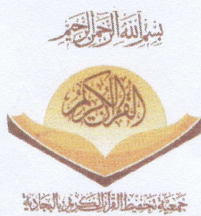 بسم الله الرحمن الرحيم
القرآن الكريم
جمعية تحفيظ القرآن الكريم بالبجادية